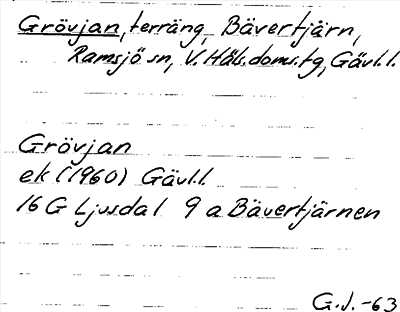 Grövjan, terräng, Bävertjärn,
Ramsjö sn, V. Häls. doms. tg, Gävl.l.
Grövjan
ek (1960) Gävl.l.
16 G Ljusdal 9 a Bävertjärnen
G.J. -63